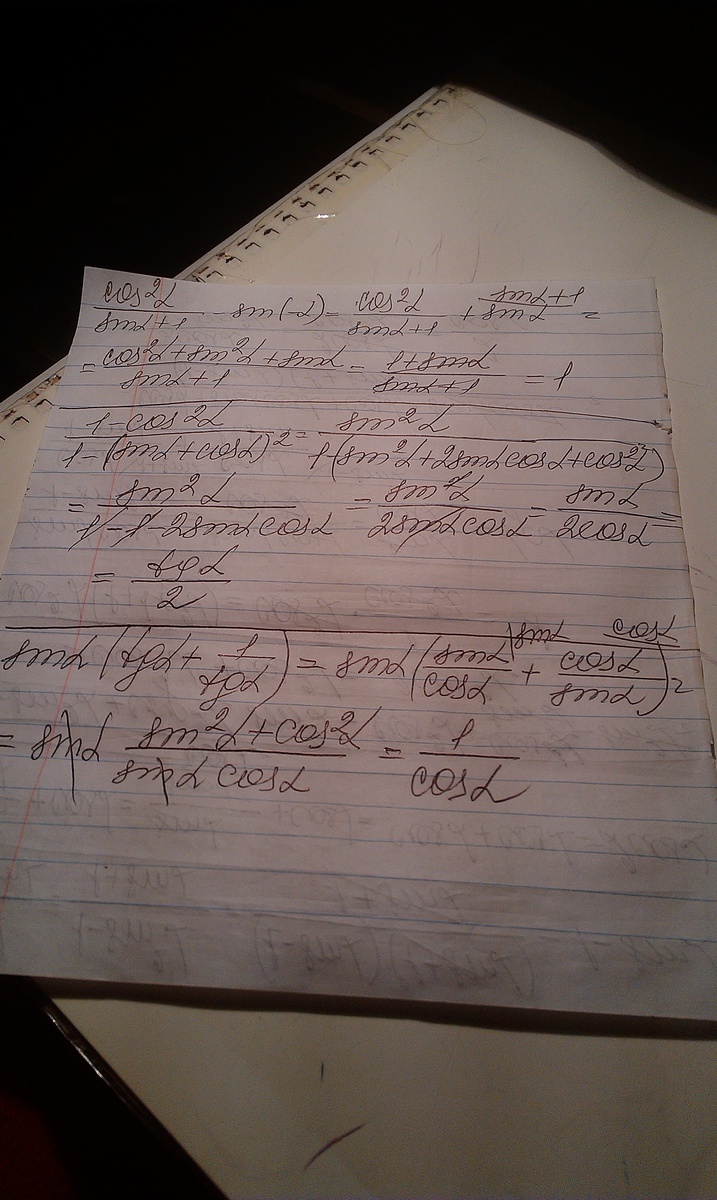 cos²α/(sinα+1) - sin(-α) = cos²α/(sinα+1) + sinα ^(sinα+1) =
= (cos²α+sin²α+sinα)/(sinα+1) = (1+sinα)/(sinα+1) = 1
(1-cos²α)/(1-(sinα+cosα)²) = sin²α/(1-(sin²α+2sinαcosα+cos²α))
= sin²α/(1-1-2sinαcosα) = sin²α/(2sinαcosα) = sinα/(2cosα) =
= tgα/2
sinα(tgα + 1/tgα) = sinα(sinα/cosα ^(sinα) + cosα/sinα ^(cosα)) =
= sinα (sin²α+cos²α)/(sinα cosα) = 1/cosα